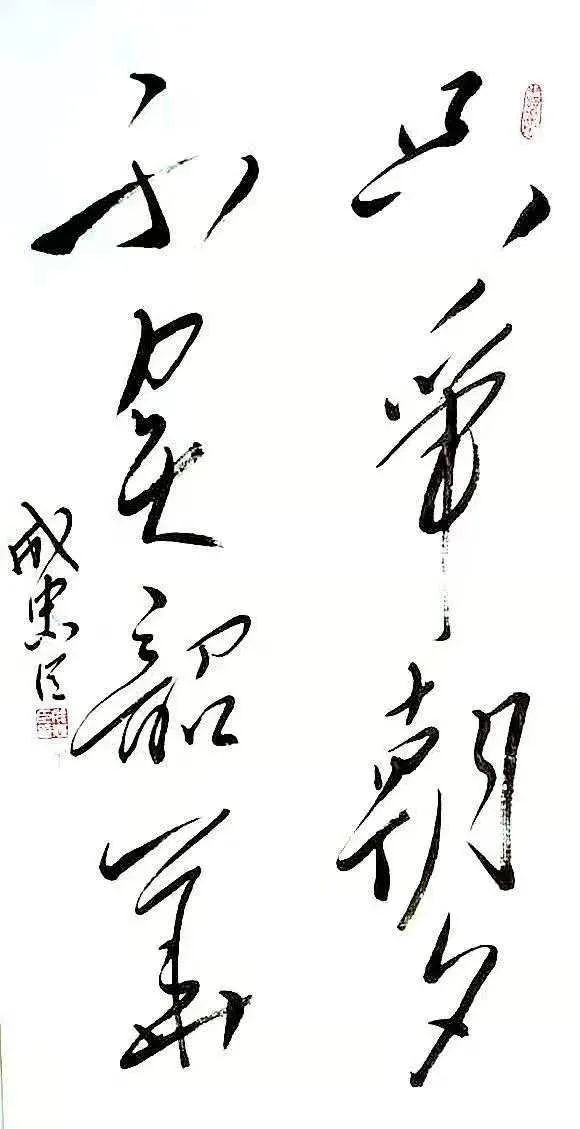 只争朝夕
不负韶华
成忠臣